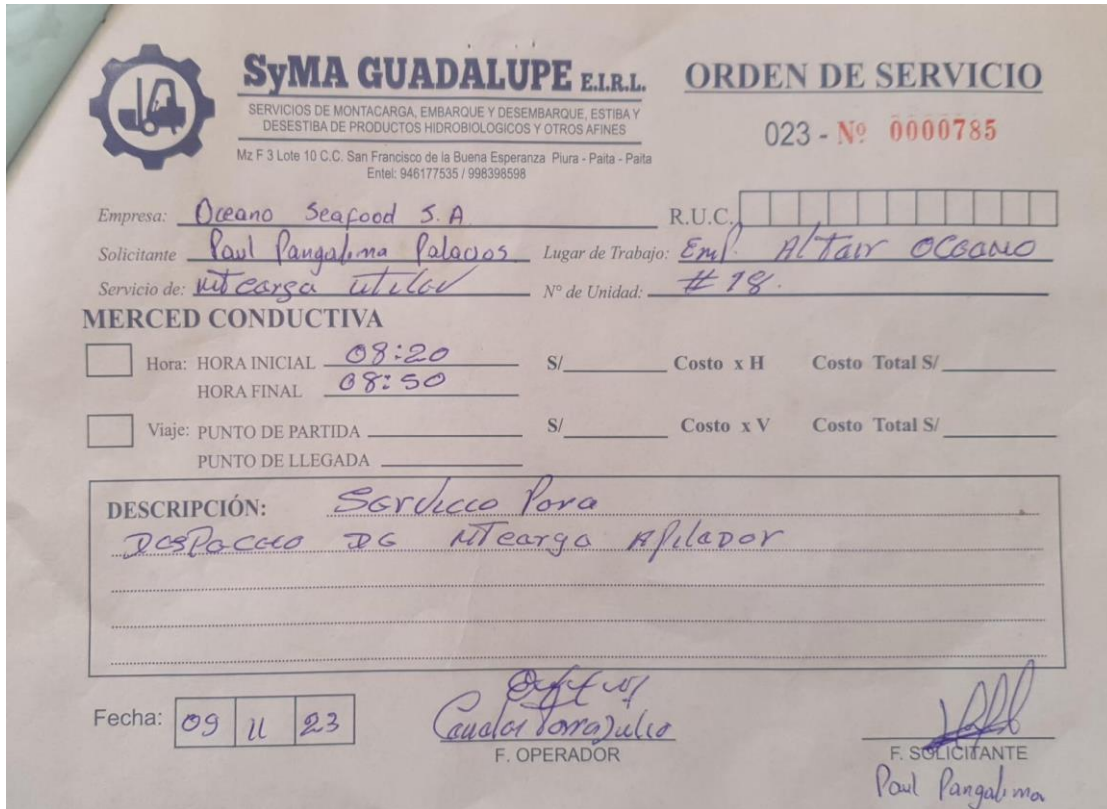 SyMA GUADALUPE E.I.R.L.
SERVICIOS DE MONTACARGA, EMBARQUE Y DESEMBARQUE, ESTIBA Y
DESESTIBA DE PRODUCTOS HIDROBIOLOGICOS Y OTROS AFINES
Mz F 3 Lote 10 C.C. San Francisco de la Buena Esperanza Piura - Paita - Paita
Entel: 946177535 / 998398598
ORDEN DE SERVICIO
023 - Nº 0000785
Empresa: Oceano Seafood S.A R.U.C.
Solicitante Paul Pangalima Palacios Lugar de Trabajo: Emp. Altair Oceano
Servicio de: Mtcarga Nº de Unidad: #18.
MERCED CONDUCTIVA
Hora: HORA INICIAL 08:20 S/ Costo x H Costo Total S/
HORA FINAL 08:50
Viaje: PUNTO DE PARTIDA S/ Costo x V Costo Total S/
PUNTO DE LLEGADA
DESCRIPCIÓN: Servicio Para
Despacho DE MTcarga Apilador
Fecha: 09 11 23
F. OPERADOR
F. SOLICITANTE
Paul Pangalima